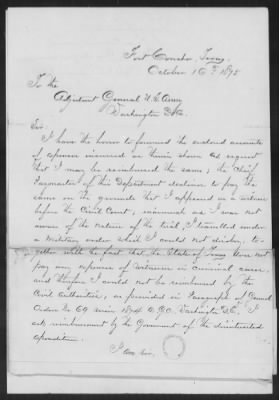 Fort Concho Texas
October 16th 1875
To the
Adjutant General U.S. Army
Washington D.C.
Sir:
I have the honor to forward the enclosed accounts
of expenses incurred as therein shown and request
that I may be reimbursed the same; the Chief
Paymaster of this Department declines to pay the
same on the grounds that I appeared as a witness
before the Civil Court, inasmuch as I was not
aware of the nature of the trial, I travelled under
a Military order which I could not disobey, to-
gether with the fact that the State of Texas does not
pay any expenses of witnesses in criminal cases,
and therefore I could not be reimbursed by the
Civil Authorities, as provided in Paragraph of General
Orders No 69 series 1874 A.G.O. Washington D.C. I
ask reimbursement by the Government of the
expenditure.
I am Sir,